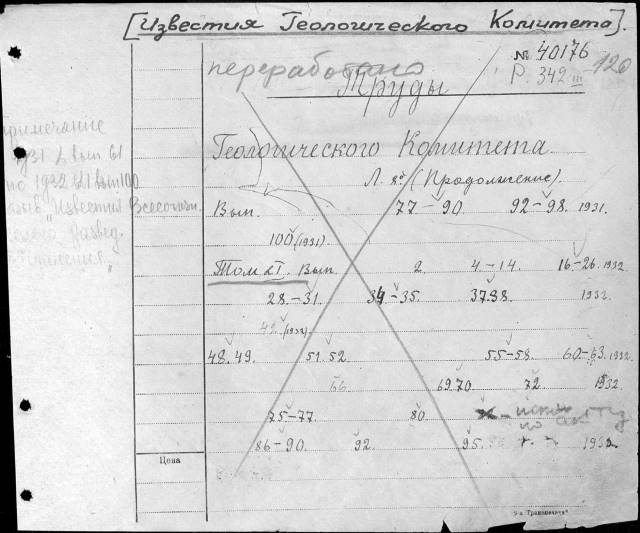 [Известия Геологического Комитета].
№ 40176
переработано
Р. 342 III
120
Труды
Геологического Комитета
Л. 8° (Продолжение).
Примечание
1931 L вып 61
по 1932 LI вып 100
"Известия Всесоюзн.
развед.
Вып. 77–90. 92–98. 1931.
100 (1931)
Том LI. Вып. 2. 4–14. 16–26. 1932
28–31. 34–35. 37.38. 1932.
42 (1932)
48.49. 51.52. 55–58. 60–63. 1932
66 69.70 72. 1932
75–77 80
по акту
86–90. 92. 95. 1932
Цена